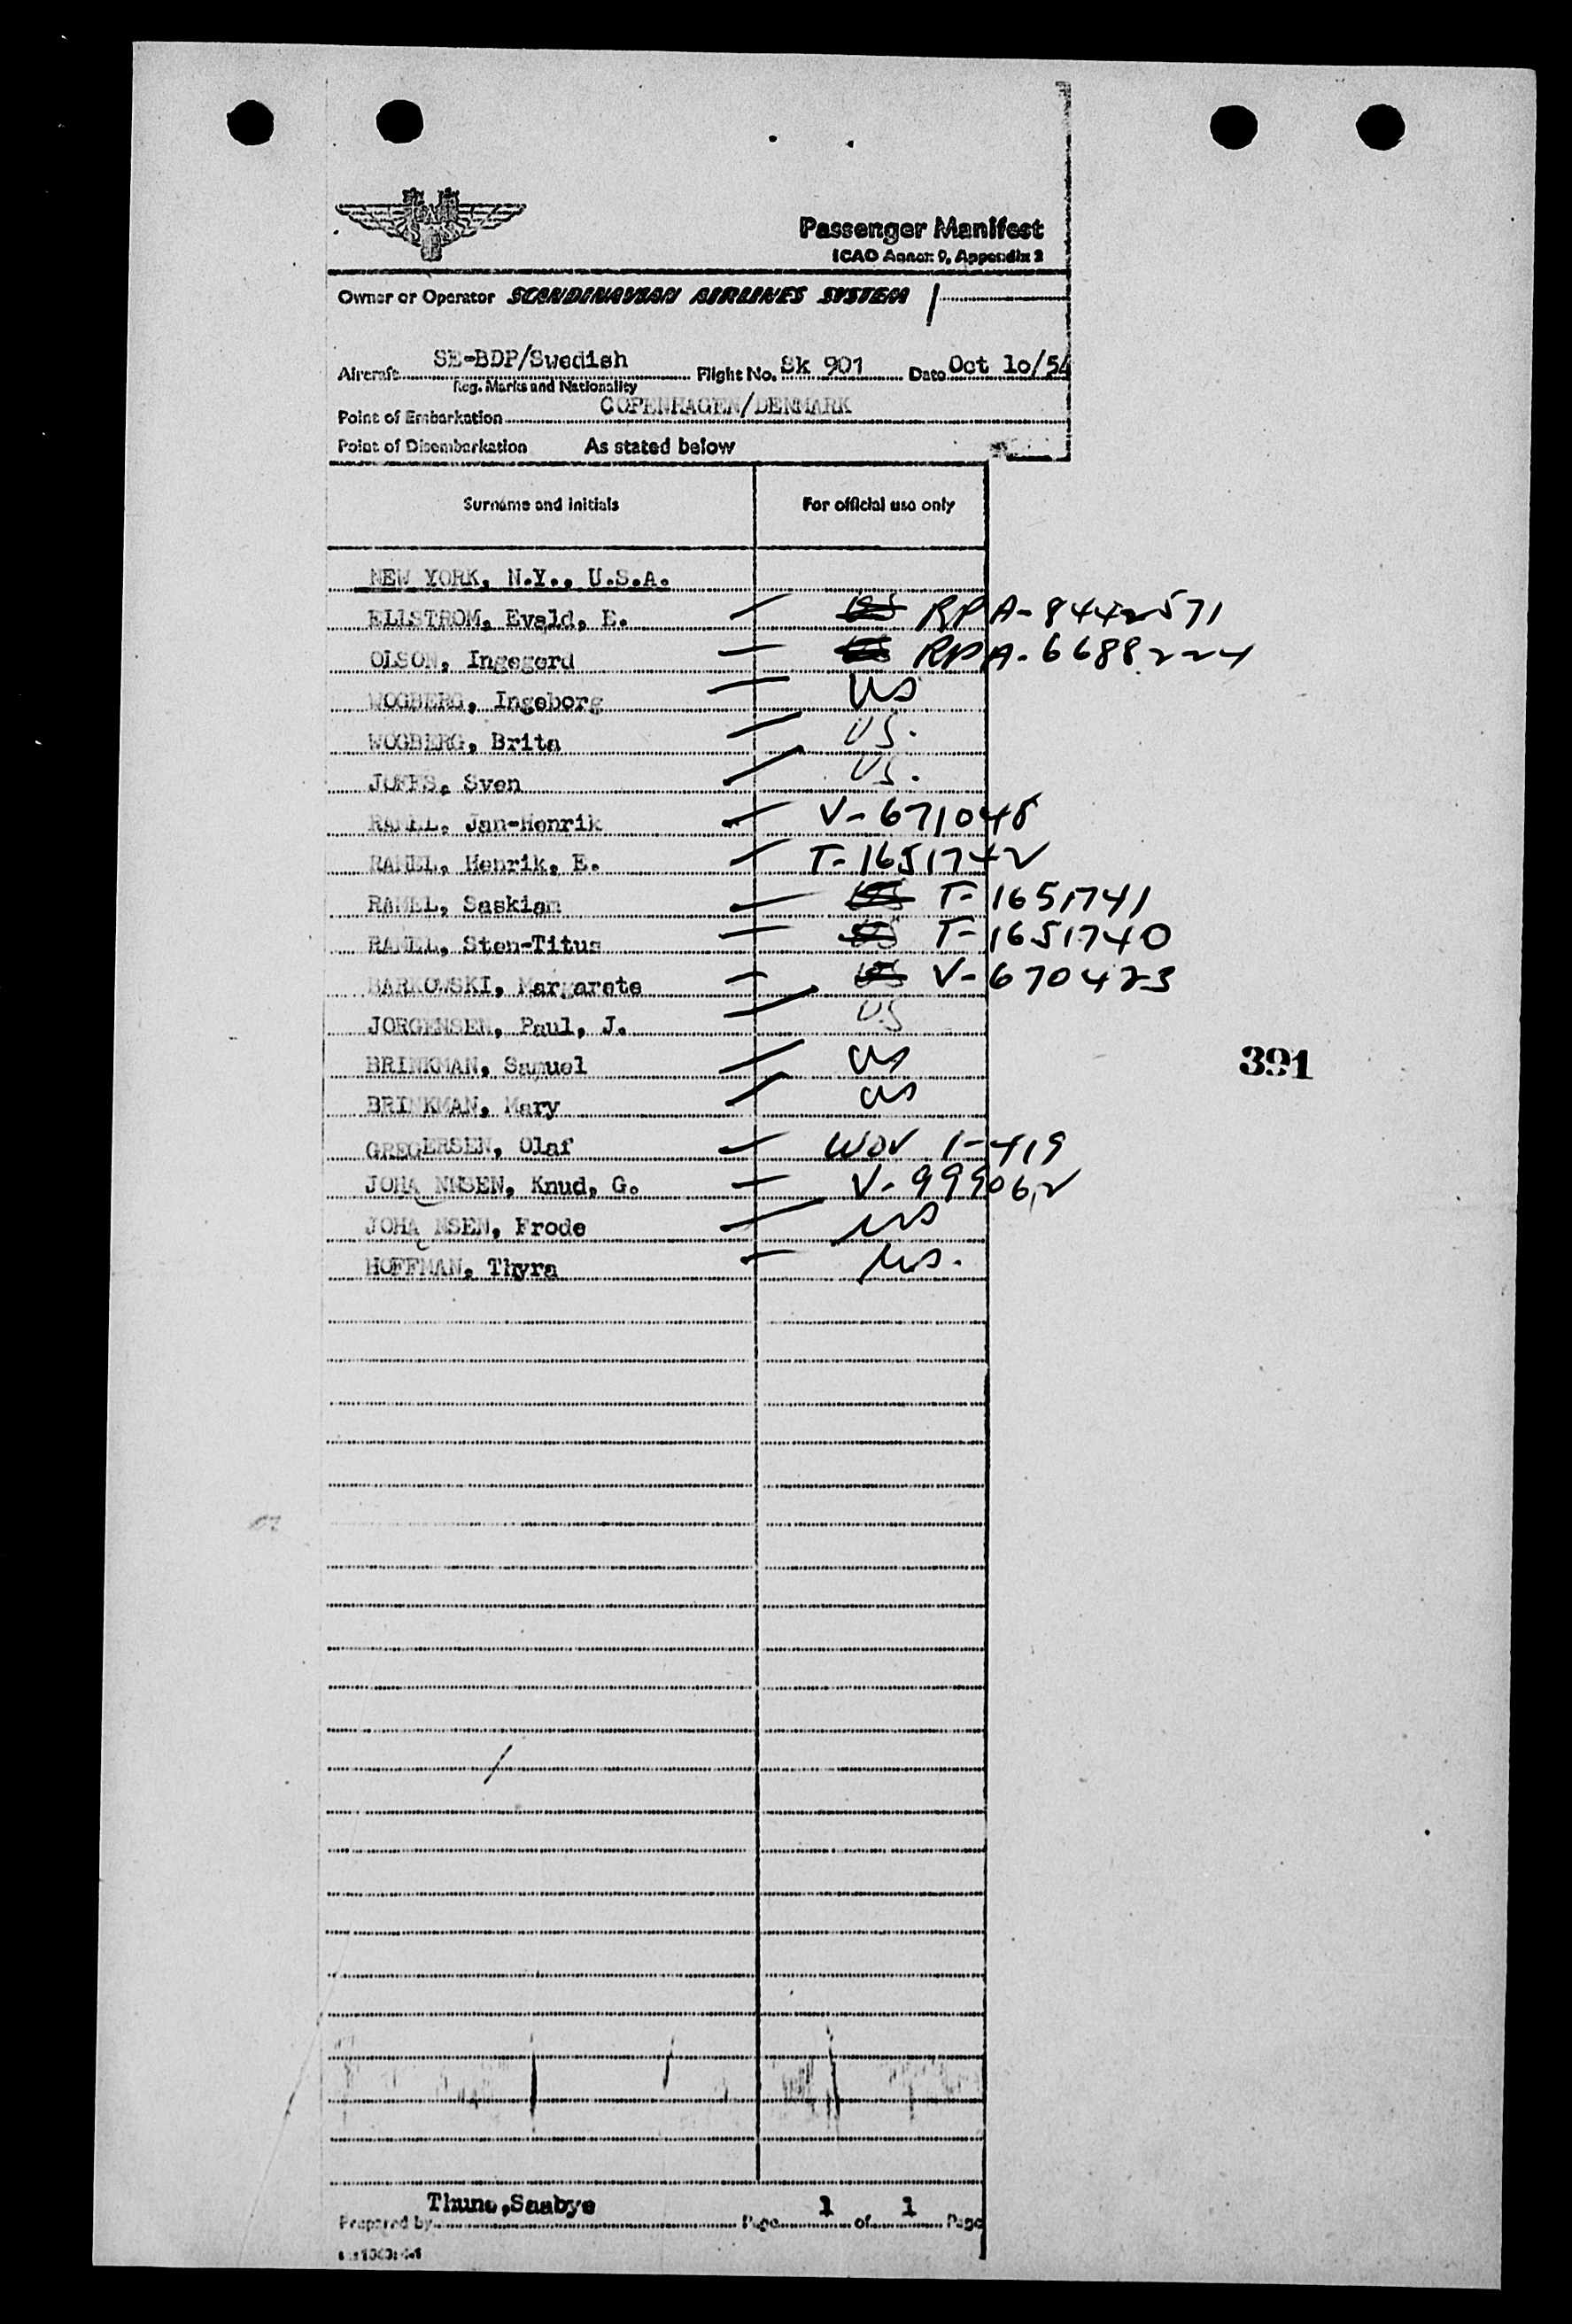 Passenger Manifest
ICAO Annex 9, Appendix 2
Owner or Operator SCANDINAVIAN AIRLINES SYSTEM
Aircraft SE-BDP/Swedish Flight No. Sk 901 Date Oct 10/54
Reg. Marks and Nationality
Point of Embarkation COPENHAGEN/DENMARK
Point of Disembarkation As stated below
Surname and initials For official use only
NEW YORK, N.Y., U.S.A.
ELLSTROM, Evald, E. RPA-8442571
OLSON, Ingegerd RPA-6688224
WOGBERG, Ingeborg US
WOGBERG, Brita US.
JOFFS, Sven US.
RAMEL, Jan-Henrik V-671048
RAMEL, Henrik, E. T-1651742
RAMEL, Saskiam US T-1651741
RAMEL, Sten-Titus US T-1651740
BARKOWSKI, Margarete US V-670423
JORGENSEN, Paul, J. US
BRINKMAN, Samuel US
391
BRINKMAN, Mary US
GREGERSEN, Olaf WOV 1-419
JOHA NNSEN, Knud, G. V-999062
JOHA NSEN, Frode US
HOFFMAN, Thyra US.
Thune,Saabye
Prepared by Page 1 of 1 Page